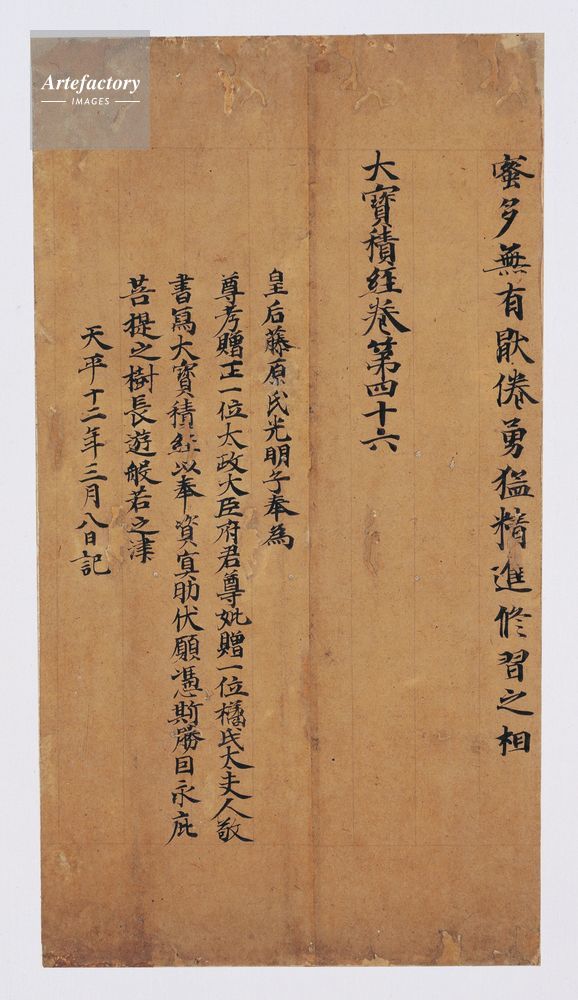 蜜多無有猒倦勇猛精進修習之相
大寶積經卷第四十六
皇后藤原氏光明子奉為
尊考贈正一位太政大臣府君尊妣贈一位橘氏太夫人敬
書寫大寶積經以奉資冥助伏願憑斯勝因永庇
菩提之樹長遊般若之津
天平十二年三月八日記
Artefactory
IMAGES